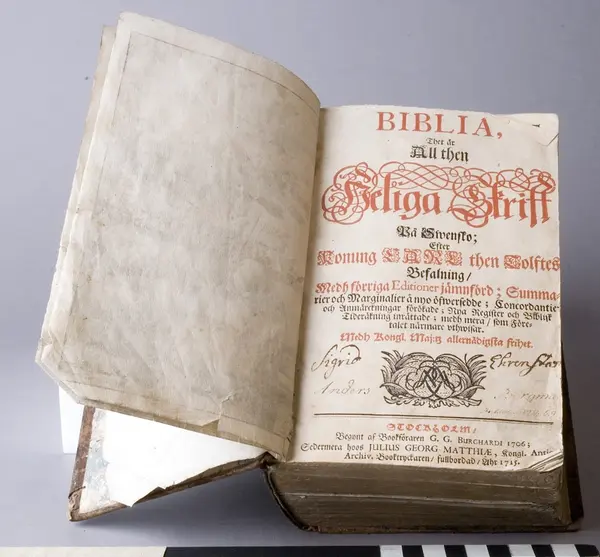 BIBLIA,
Thet är
All then
Heliga Skrift
På Swensko;
Efter
Konung CARL then Tolftes
Befalning/
Medh förriga Editioner jämnförd; Summa-
rier och Marginalier å nyo öfwersedde; Concordantier
och Anmärckningar förökade; Nya Register och Biblisk
Tideräkning inrättade; medh mera/ som Före-
talet närmare uthwisar.
Medh Kongl. Maj:tz allernådigsta frihet.
Sigrid Ehrenstar
Anders
STOCKHOLM/
Begynt af Bookföraren G. G. BURCHARDI 1706;
Sedermera hoos JULIUS GEORG MATTHIÆ, Kongl. Antiq.
Archiv. Booktryckaren/ fullbordad/ Åhr 1715.